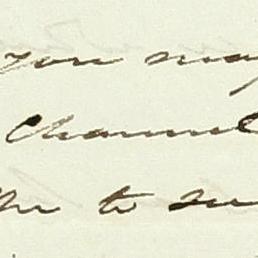 you may
Channel
to